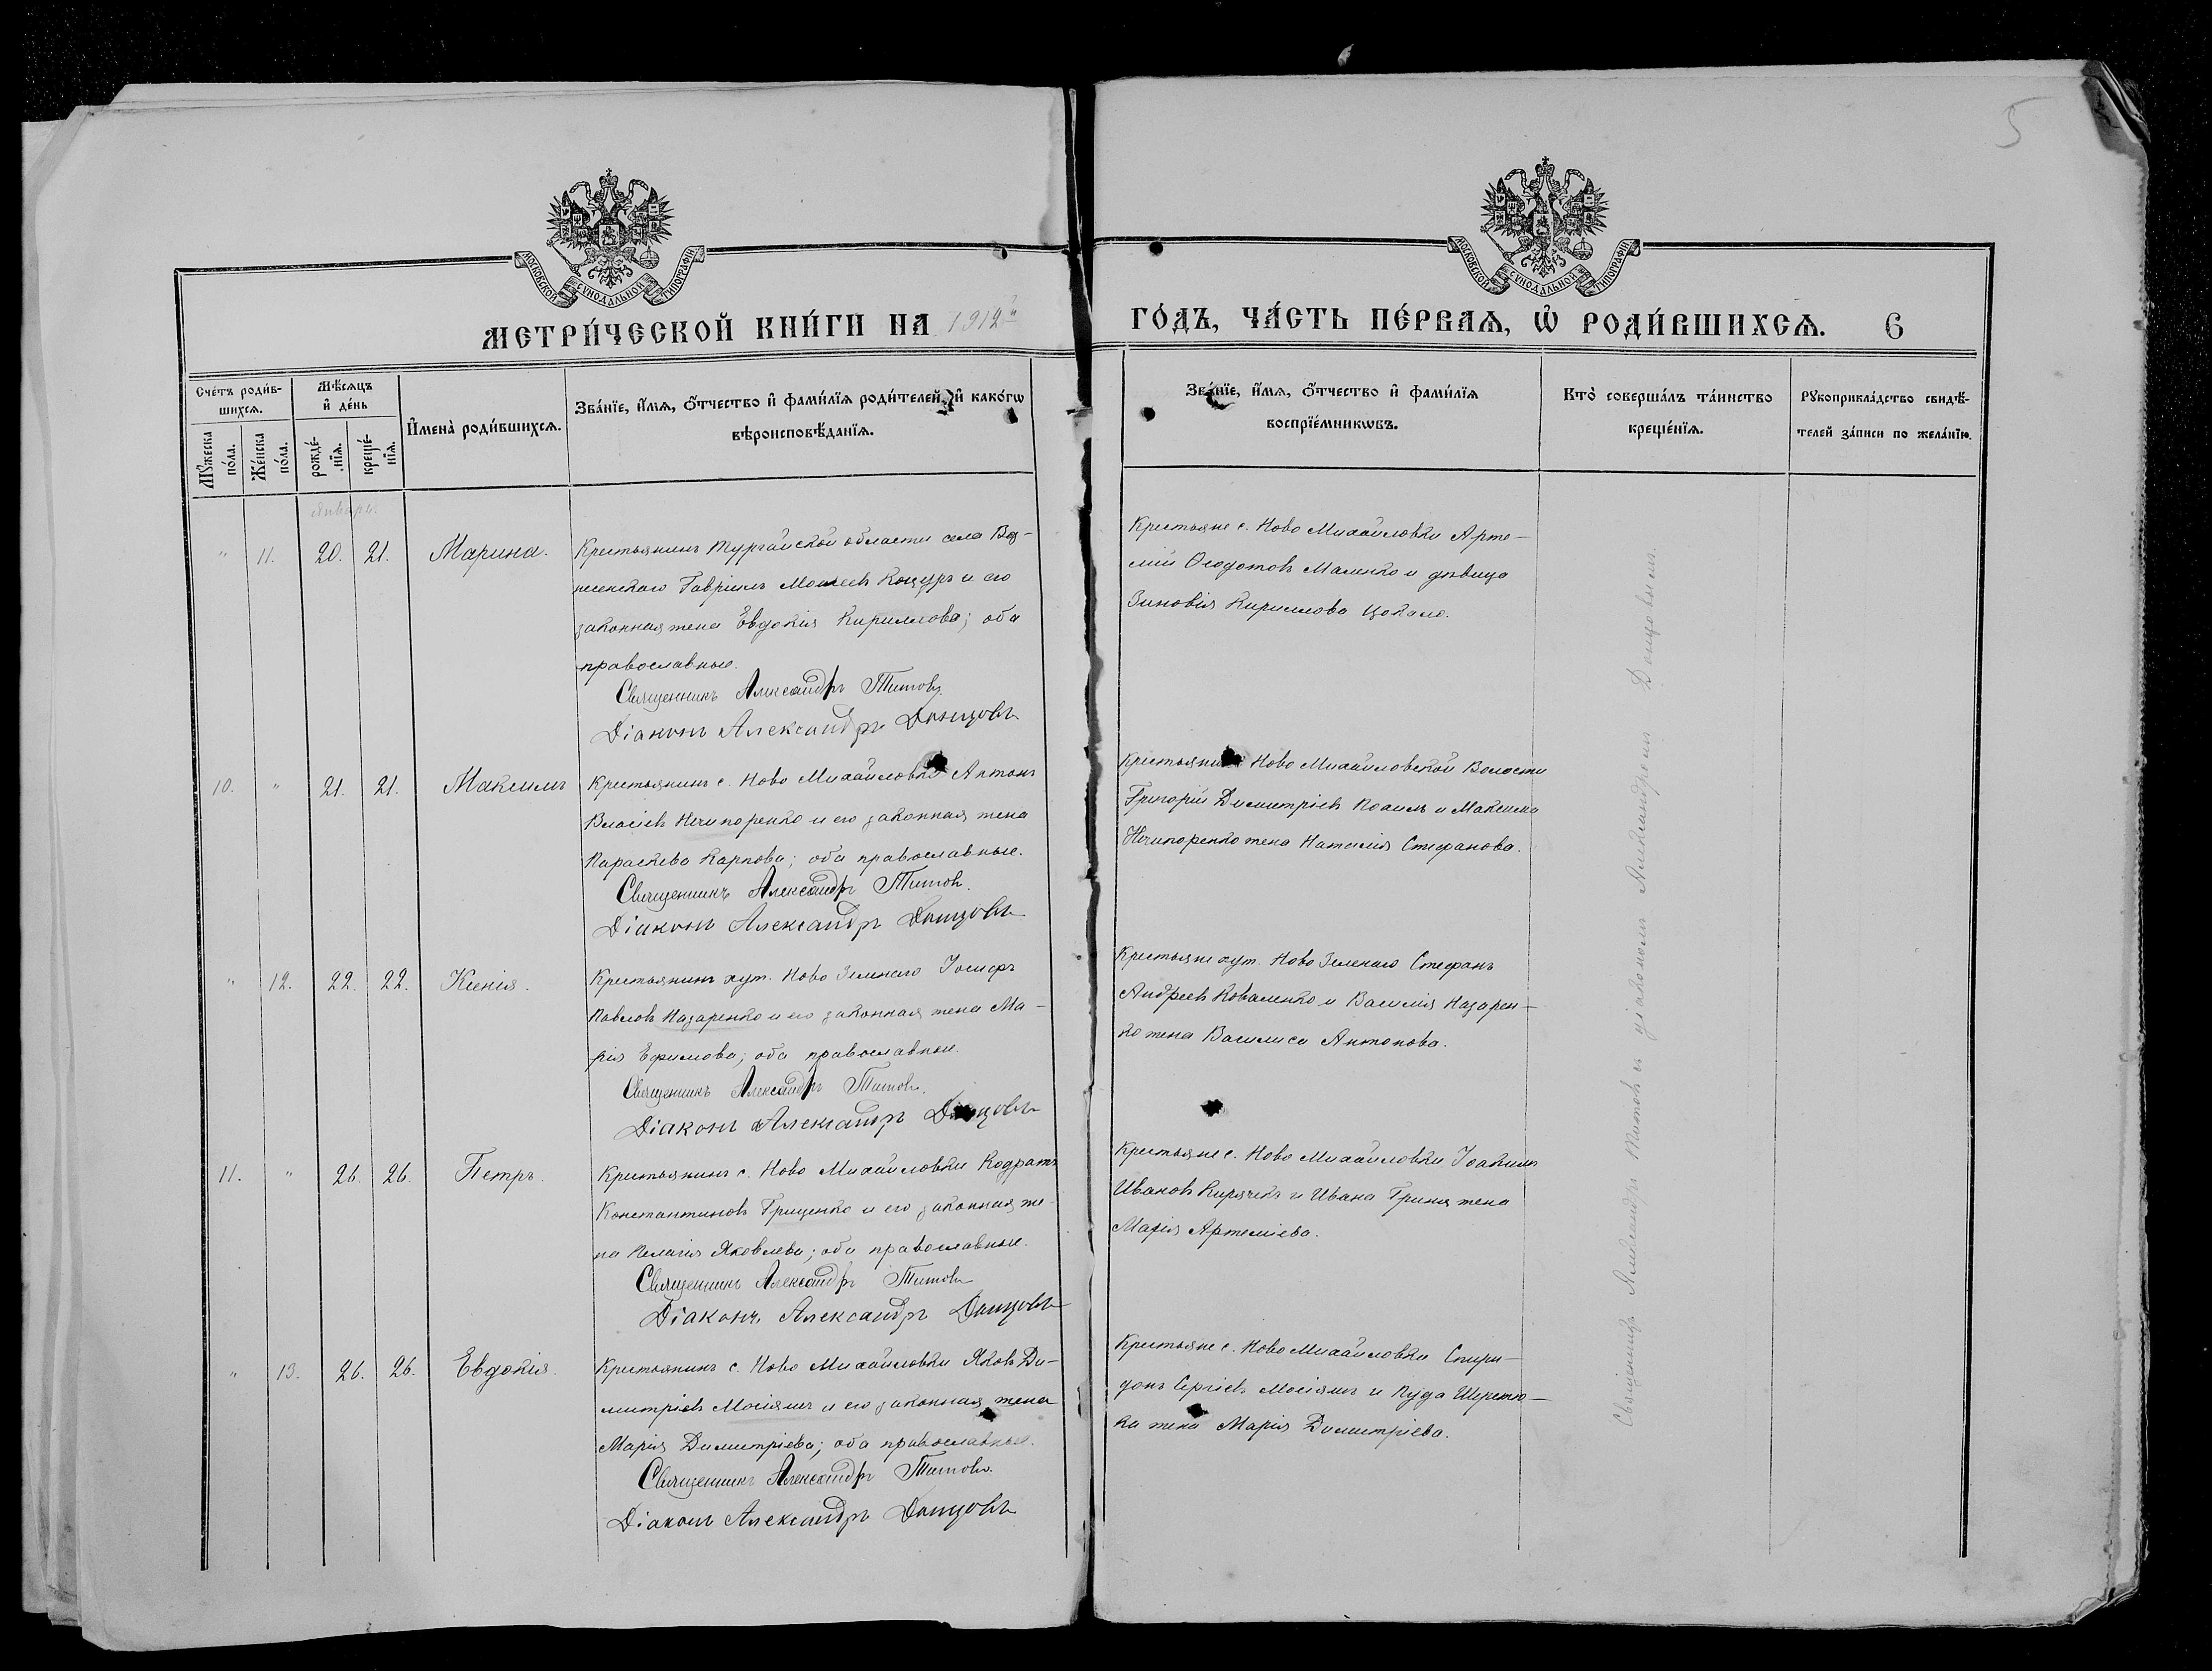 5
МОСКОВСКОЙ СѴНОДАЛЬНОЙ ТИПОГРАФІИ
МОСКОВСКОЙ СѴНОДАЛЬНОЙ ТИПОГРАФІИ
МЕТРИ́ЧЕСКОЙ КНИ́ГИ НА 1912й
ГО́ДЪ, ЧА́СТЬ ПЕ́РВАѦ, Ѡ҆ РОДИ́ВШИХСѦ. 6
Сче́тъ роди́в-
шихсѧ.
Мꙋ́жеска по́ла.
Же́нска по́ла.
Мѣ́сѧцъ и҆ де́нь
рожде́-нїѧ.
креще́-нїѧ.
И҆мена̀ роди́вшихсѧ.
Зва́нїе, и҆́мѧ, ѻ҆́тчество и҆ фами́лїѧ роди́телей, и҆ како́гѡ
вѣроисповѣ́данїѧ.
Зва́нїе, и҆́мѧ, ѻ҆́тчество и҆ фами́лїѧ
воспрїе́мникѡвъ.
Кто̀ соверша́лъ та́инство
креще́нїѧ.
Рꙋкоприкла́дство свидѣ́-
телей за́писи по жела́нїю.
Января.
" 11. 20. 21. Марина.
Крестьянинъ Тургайской области села Воз-
несенскаго Гавріилъ Моисеевъ Коцуръ и его
законная жена Евдокія Кириллова; оба
православные.
Священникъ Александръ Титовъ.
Діаконъ Александръ Донцовъ
Крестьяне с. Ново Михайловки Арте-
мій Ѳеодотовъ Маленко и дѣвица
Зиновія Кириллова Цокало.
10. " 21. 21. Максимъ
Крестьянинъ с. Ново Михайловки Антонъ
Власіевъ Нечипоренко и его законная жена
Параскева Карпова; оба православные.
Священникъ Александръ Титовъ.
Діаконъ Александръ Донцовъ
Ново Михайловской Волости
Григорій Димитріевъ и Максима
Нечипоренко жена Наталія Стефанова.
" 12. 22. 22. Ксенія.
Крестьянинъ хут. Ново Зеленаго Іосифъ
Павловъ Назаренко и его законная жена Ма-
рія Ефимова; оба православные.
Священникъ Александръ Титовъ.
Діаконъ Александръ Донцовъ
Крестьяне хут. Ново Зеленаго Стефанъ
Андреевъ Коваленко и Василія Назарен-
ко жена Василиса Антонова.
11. " 26. 26. Петръ.
Крестьянинъ с. Ново Михайловки Кодратъ
Константиновъ Гриценко и его законная же-
на Пелагія Яковлева; оба православные.
Священникъ Александръ Титовъ
Діаконъ Александръ Донцовъ
Крестьяне с. Ново Михайловки Іоакимъ
Ивановъ Кирячекъ и Ивана Гриня жена
Марія Артеміева.
" 13. 26. 26. Евдокія.
Крестьянинъ с. Ново Михайловки Яковъ Ди-
митріевъ Мосіяшъ и его законная жена
Марія Димитріева; оба православные.
Священникъ Александръ Титовъ.
Діаконъ Александръ Донцовъ
Крестьяне с. Ново Михайловки Спири-
донъ Сергіевъ Мосіяшъ и Іуда Шерстю-
ка жена Марія Димитріева.
Священникъ Александръ Титовъ съ діакономъ Александромъ Донцовымъ.